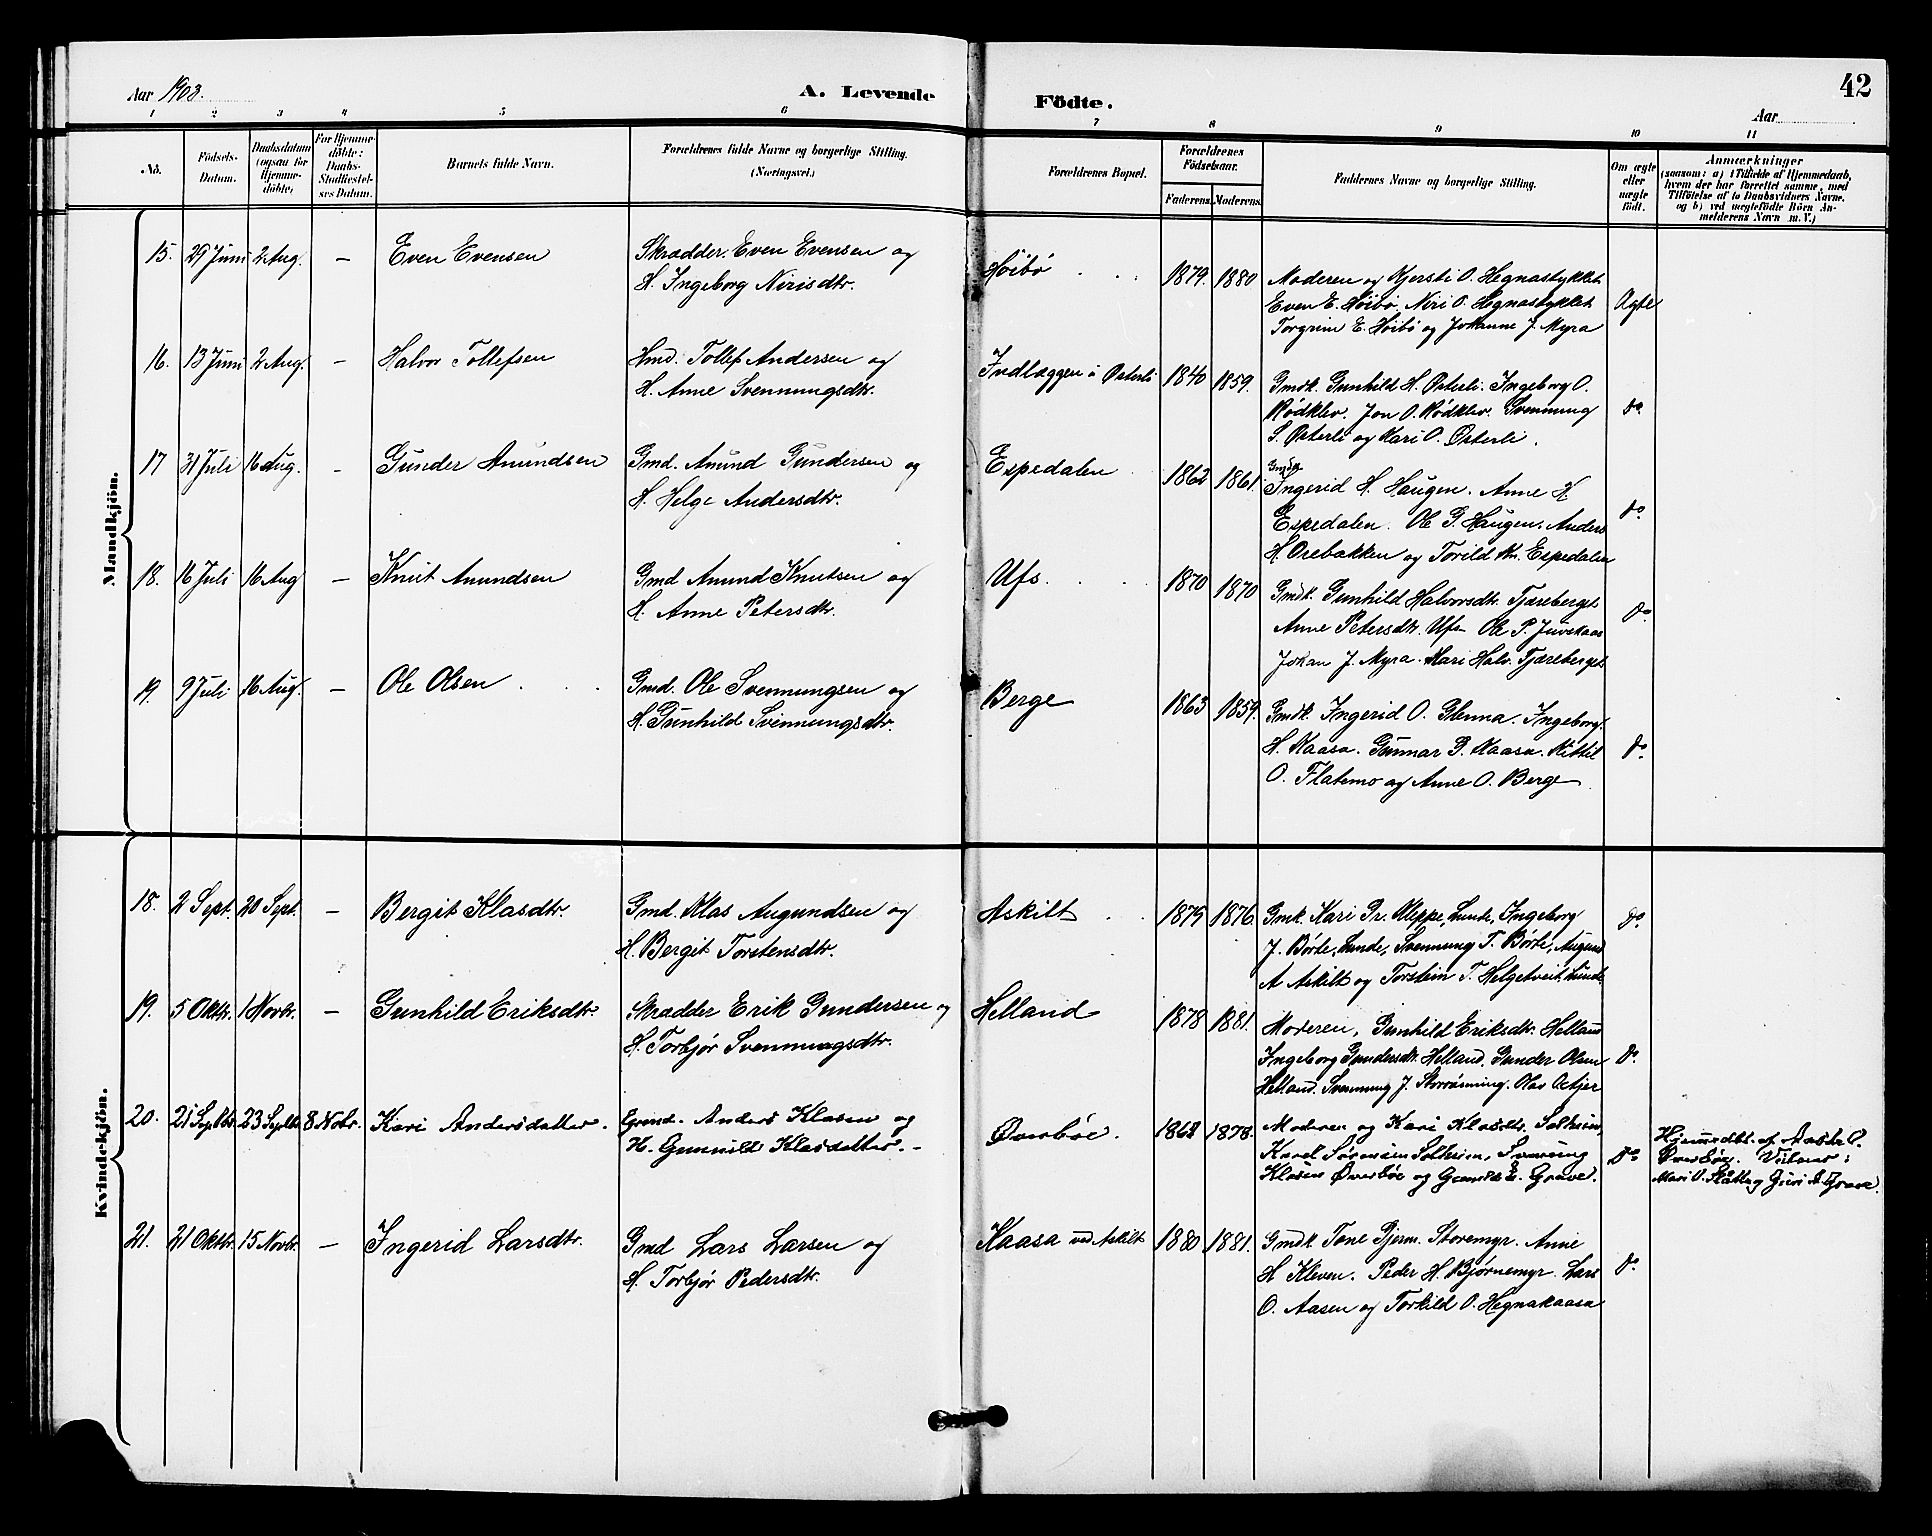 Aar 1903.
A. Levende
Födte.
42
Aar
1 2 3 4 5 6 7 8 9 10 11
No.
Födsels-Datum.
Daabsdatum (ogsaa for Hjemmedöbte)
For Hjemmedöbte: Daabs-Stadfæstelses Datum.
Barnets fulde Navn.
Forældrenes fulde Navne og borgerlige Stilling. (Næringsvei.)
Forældrenes Bopæl.
Forældrenes Födselsaar.
Faderens. Moderens.
Faddernes Navne og borgerlige Stilling.
Om ægte eller uægte födt.
Anmærkninger
(saasom: a) i Tilfælde af Hjemmedaab,
hvem der har forrettet samme, med
Tilföielse af to Daabsvidners Navne.
og b) ved uægtefödte Börn An-
melderens Navn m. V.)
Mandkjön.
15. 29 Juni 2 Aug. — Even Evensen Skrædder. Even Evensen og
H. Ingeborg Nirisdtr.
Høibø 1879. 1880 Moderen og Kjersti O. Hegnastykket
Even E. Høibø, Niri O. Hegnastykket
Torgrim E. Høibø og Johanne J. Myra
Ægte
16. 13 Juni 2 Aug. — Halvor Tollefsen Hmd. Tollef Andersen og
H. Anne Svennungsdtr.
Indlæggen i Østerli 1840 1859. Gmdk. Gunhild H. Østerli. Ingeborg O.
Rødklev. Jon O. Rødklev. Svennung
S. Østerli og Kari O. Østerli.
do.
17 31 Juli 16 Aug. — Gunder Anundsen Gmd. Anund Gundersen og
H. Helge Andersdtr.
Espedalen 1862 1861. Gmdk.
Ingerid H. Haugen. Anne H.
Espedalen. Ole G. Haugen. Anders
H. Orebakken og Torild Kn. Espedalen
do.
18. 16 Juli 16 Aug — Knut Anundsen Gmd Anund Knutsen og
H. Anne Petersdtr.
Ufs. 1870 1870 Gmdk. Gunhild Halvorsdtr. Tjæreberget
Anne Petersdtr. Ufs Ole P. Juvskaas
Johan J. Myra. Kari Halv. Tjæreberget
do.
19. 9 Juli 16 Aug. — Ole Olsen Gmd. Ole Svennungsen og
H. Gunhild Svennungsdtr.
Berge 1863 1859. Gmdk. Ingerid O. Glenna. Ingeborg
H. Kaasa. Gunnar G. Kaasa. Kittil
O. Flatemo og Anne O. Berge
do.
Kvindekjön.
18. 2 Sept. 20 Sept. — Bergit Klasdtr. Gmd. Klas Augundsen og
H. Bergit Torstensdtr.
Askilt 1875 1876. Gmk. Kari Gr. Kleppe, Lunde, Ingeborg
J. Børte, Lunde, Svennung T. Børte, Augund
A Askilt og Torstein T. Helgetveit, Lunde
do
19. 5 Oktr. 1 Novbr. — Gunhild Eriksdtr. Skrædder Erik Gundersen og
H. Torbjør Svennungsdtr.
Helland 1878 1881. Moderen, Gunhild Eriksdtr. Helland
Ingeborg Gundersdtr. Helland, Gunder Olsen
Helland. Svennung J. Olav
do.
20. 21 Septbr 23 Septbr 8 Nobr. Kari Andersdatter. Grmd. Anders Klasen og
H. Gunnild Klasdatter. -
Øverbøe. 1862 1878. Moderen og Kari Klasdtr. Solheim,
Karel Sørensen Solheim, Svennung
Klasen Øverbøe og Grave.
do
Hjemmedbt. af Aaste O.
Øverbøe. Vidner:
Mari O. og Guri Grave.
21. 21 Oktbr. 15 Novbr. — Ingerid Larsdtr. Gmd Lars Larsen og
H. Torbjør Pedersdtr.
Kaasa ved Askilt 1880 1881. Gmdk. Tone Bjern. Storemyr. Anne
H. Kleven. Peder H. Bjørnemyr. Lars
O. Aasen og Torkild O. Hegnakaasa
do.